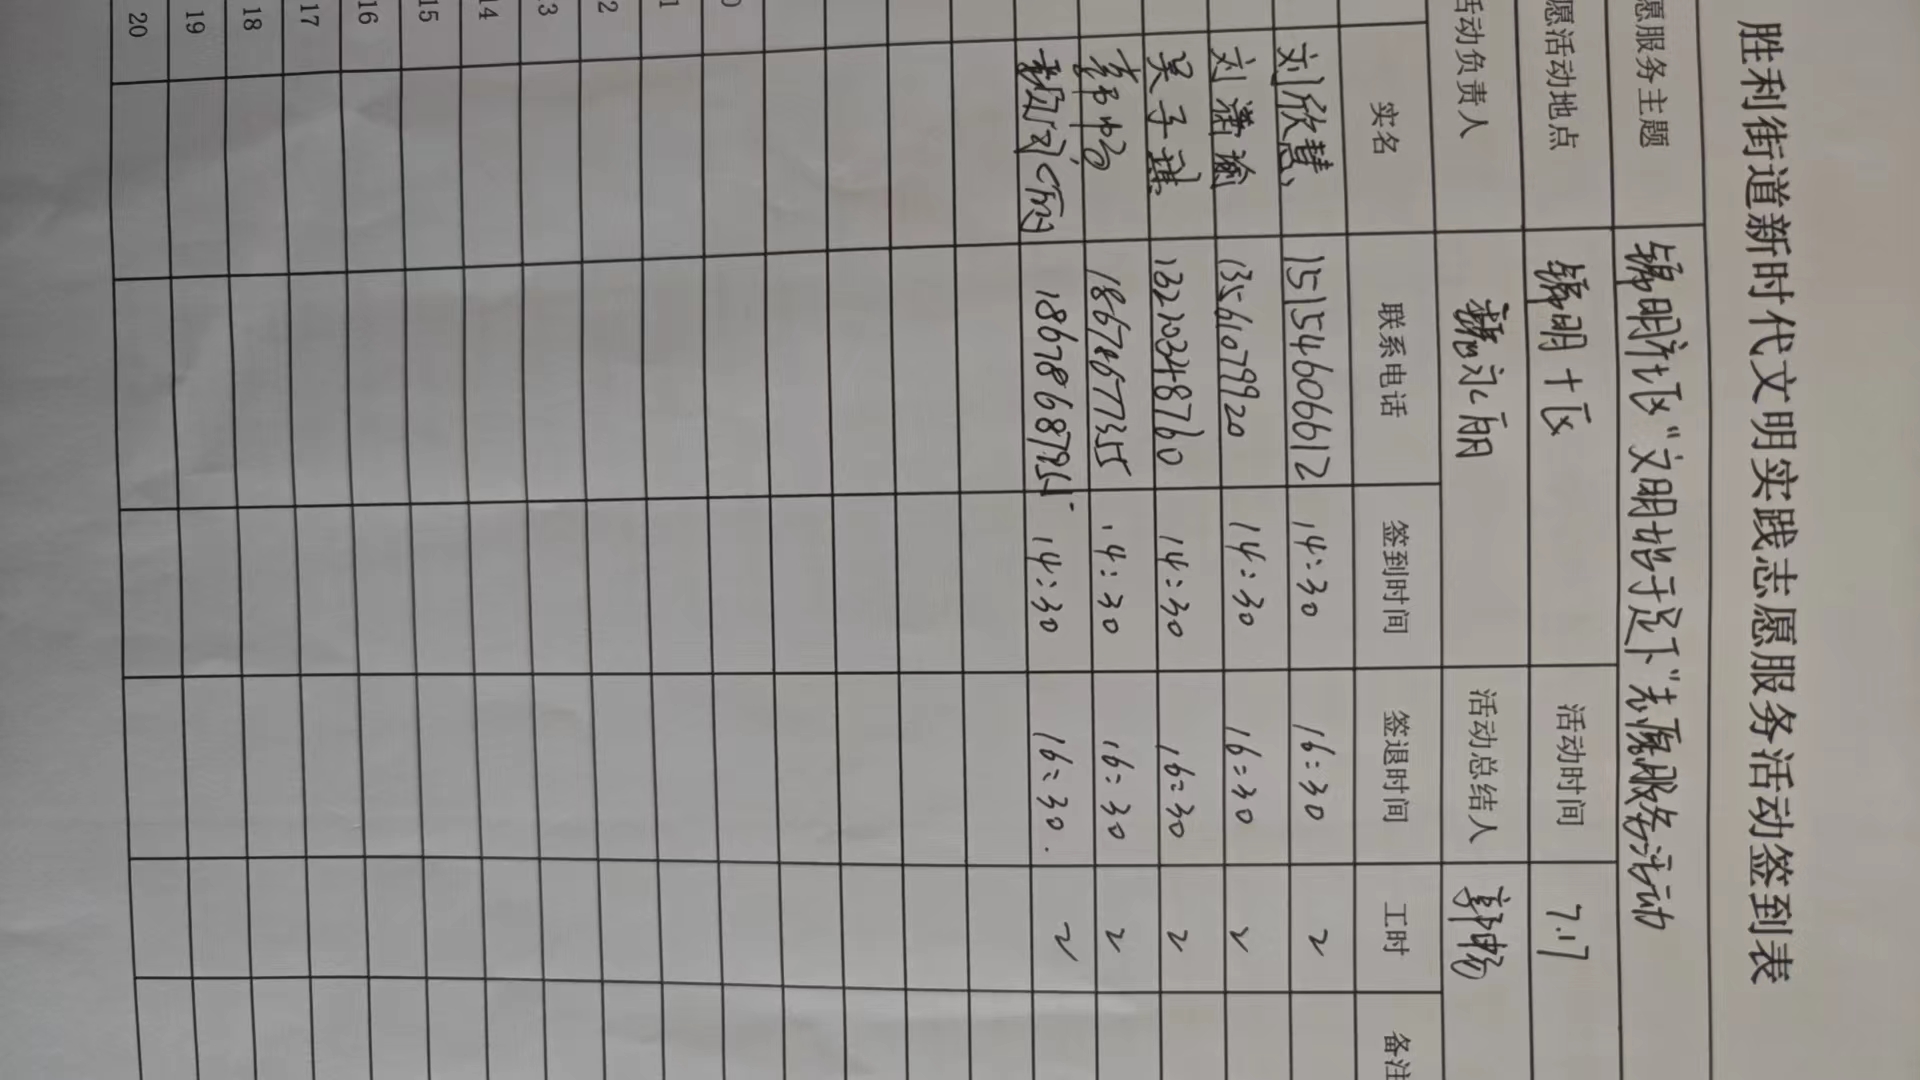 胜利街道新时代文明实践志愿服务活动签到表
愿服务主题 锦明社区“文明始于足下”志愿服务活动
愿活动地点 锦明十区 活动时间 7.17
活动负责人 永丽 活动总结人 郭畅
实名 联系电话 签到时间 签退时间 工时 备注
刘欣慧 15154606612 14:30 16:30 2
刘潇瑜 13561079920 14:30 16:30 2
吴子琪 13210348760 14:30 16:30 2
郭畅 18678677355 14:30 16:30 2
14:30 16:30 2
0
1
2
3
14
15
16
17
18
19
20